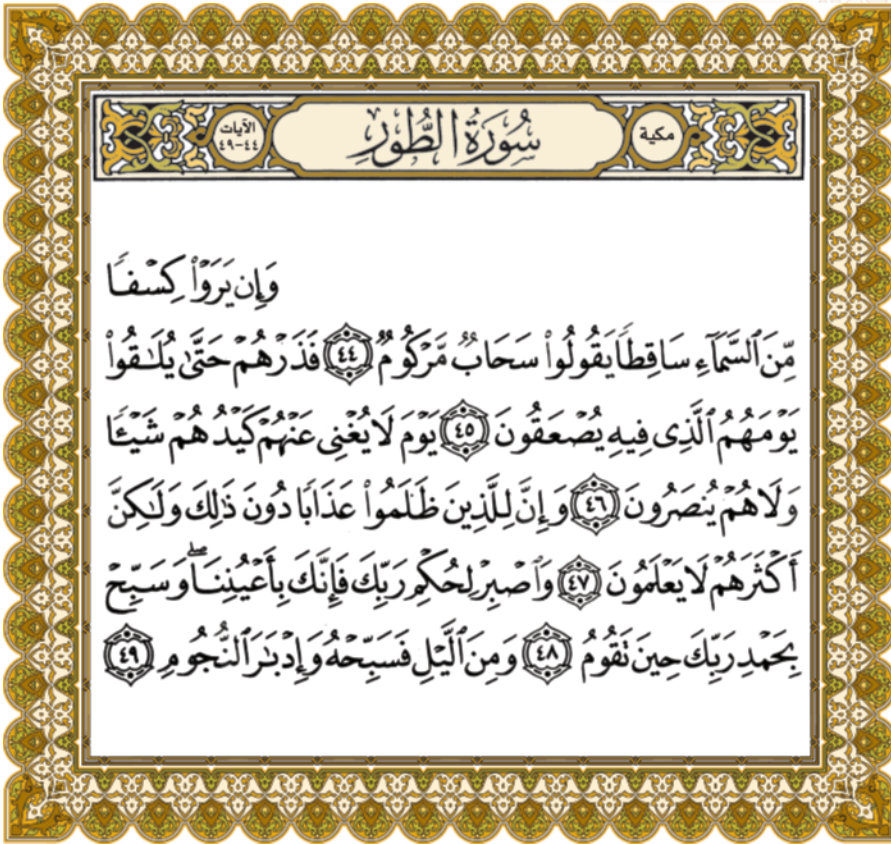 مكية
سُورَةُ الطُّورِ
الآيات
٤٤-٤٩
وَإِن يَرَوْاْ كِسْفًا
مِّنَ ٱلسَّمَآءِ سَاقِطًا يَقُولُواْ سَحَابٌ مَّرْكُومٌ ٤٤ فَذَرْهُمْ حَتَّىٰ يُلَٰقُواْ
يَوْمَهُمُ ٱلَّذِى فِيهِ يُصْعَقُونَ ٤٥ يَوْمَ لَا يُغْنِى عَنْهُمْ كَيْدُهُمْ شَيْـًٔا
وَلَا هُمْ يُنصَرُونَ ٤٦ وَإِنَّ لِلَّذِينَ ظَلَمُواْ عَذَابًا دُونَ ذَٰلِكَ وَلَٰكِنَّ
أَكْثَرَهُمْ لَا يَعْلَمُونَ ٤٧ وَٱصْبِرْ لِحُكْمِ رَبِّكَ فَإِنَّكَ بِأَعْيُنِنَاۖ وَسَبِّحْ
بِحَمْدِ رَبِّكَ حِينَ تَقُومُ ٤٨ وَمِنَ ٱلَّيْلِ فَسَبِّحْهُ وَإِدْبَٰرَ ٱلنُّجُومِ ٤٩